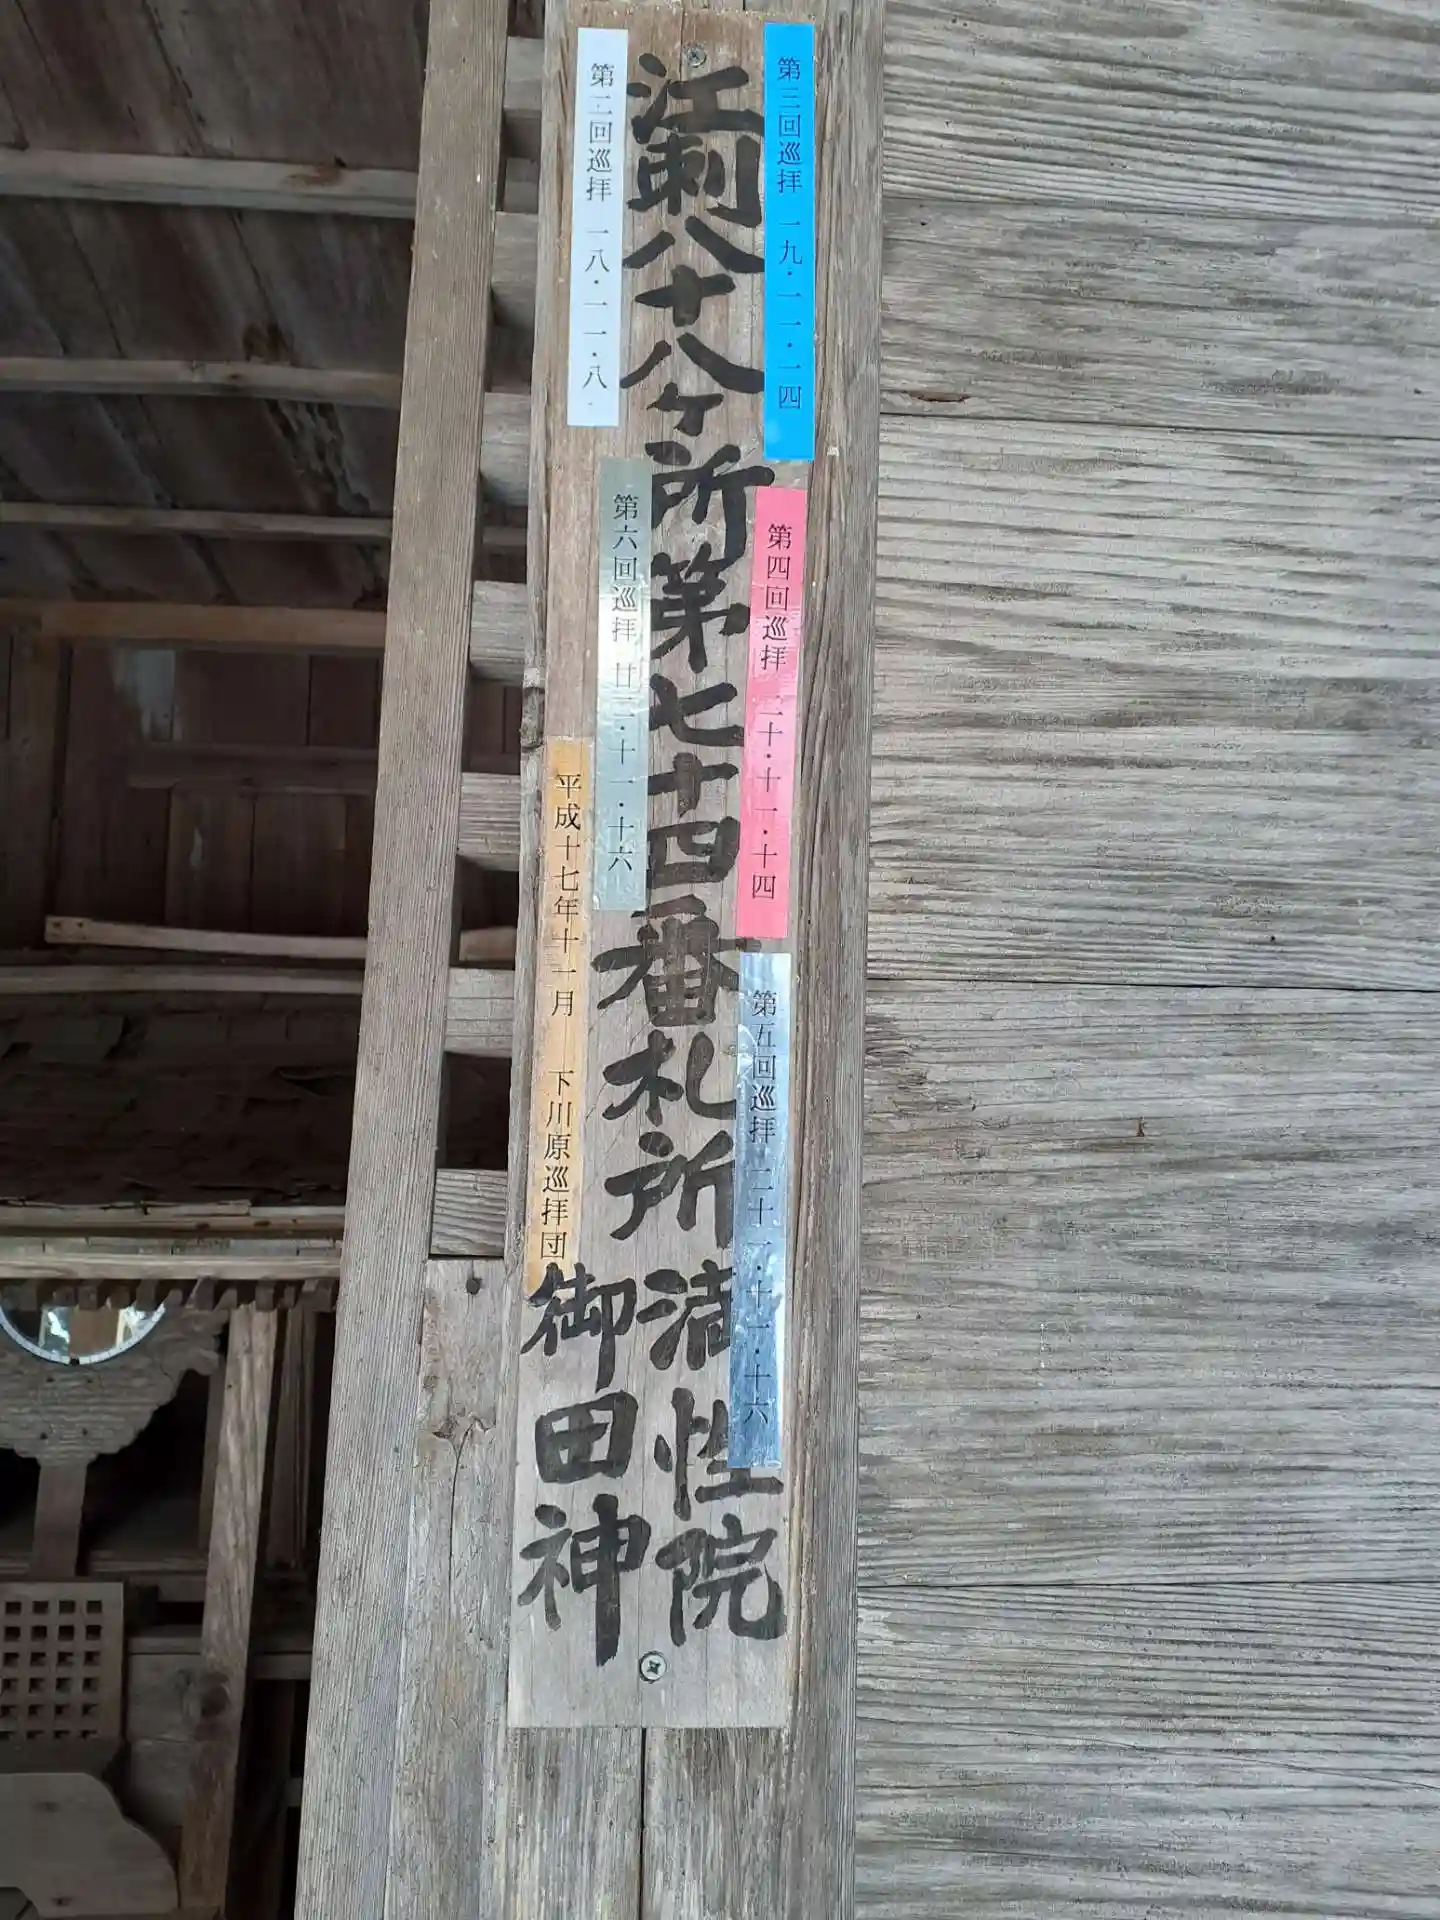 江刺八十八ヶ所第七十四番札所
満性院
御田神
第三回巡拝 一九・一一・一四
第二回巡拝 一八・一一・八
第四回巡拝 二十・十一・十四
第六回巡拝 廿二・十一・十六
第五回巡拝 二十一・十一・十六
平成十七年十一月 下川原巡拝団